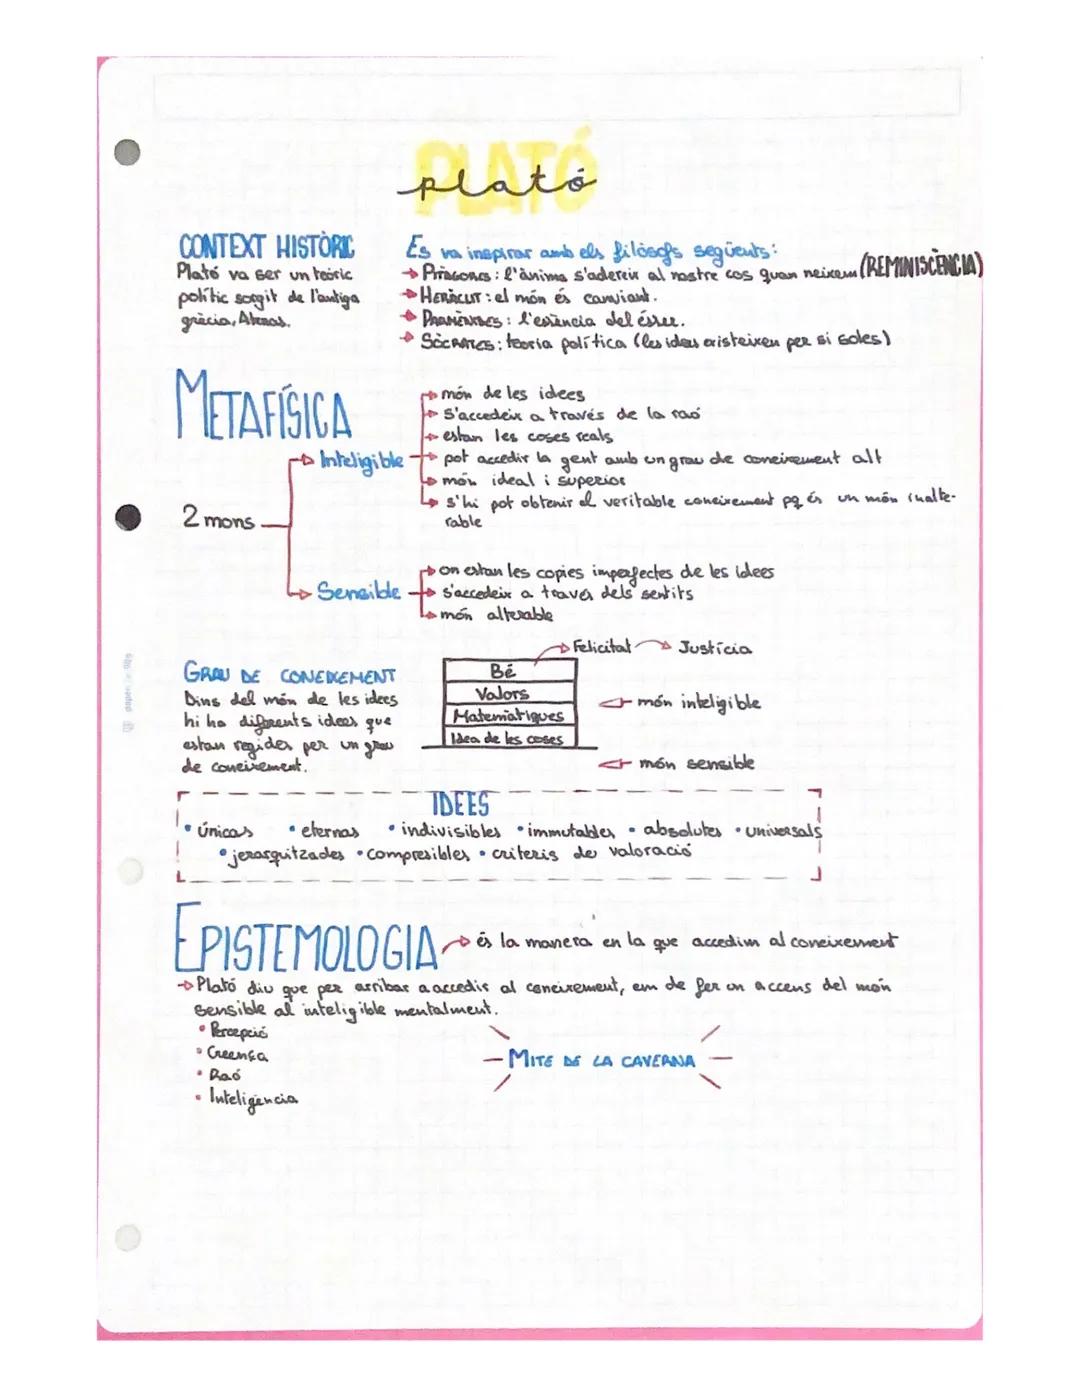 PLATÓ
plató
CONTEXT HISTÒRIC
Plató va ser un teòric
polític sorgit de l'antiga
grècia, Atenas.
Es va inspirar amb els filòsofs següents:
→ PITÀGORES: l'ànima s'adereix al nostre cos quan neixem (REMINISCÈNCIA)
→ HERÀCLIT: el món és canviant.
→ PARMÈNIDES: l'essència del ésser.
→ SÒCRATES: teoria política (les idees existeixen per si soles)
METAFÍSICA
2 mons
Inteligible
món de les idees
s'accedeix a través de la raó
estan les coses reals
pot accedir la gent amb un grau de coneixement alt
món ideal i superior
s'hi pot obtenir el veritable coneixement pq és un món inalte-
rable
Sensible
on estan les copies imperfectes de les idees
s'accedeix a través dels sentits
món alterable
GRAU DE CONEIXEMENT
Dins del món de les idees
hi ha diferents idees que
estan regides per un grau
de coneixement.
Felicitat → Justícia
Bé
Valors
Matemàtiques
Idea de les coses
món inteligible
món sensible
IDEES
• únicas • eternas • indivisibles • immutables • absolutes • universals
• jerarquitzades • compresibles • criteris de valoració
EPISTEMOLOGIA → és la manera en la que accedim al coneixement
→ Plató diu que per arribar a accedir al coneixement, em de fer un accens del món
sensible al inteligible mentalment.
• Percepció
• Creença
• Raó
• Inteligència
MITE DE LA CAVERNA